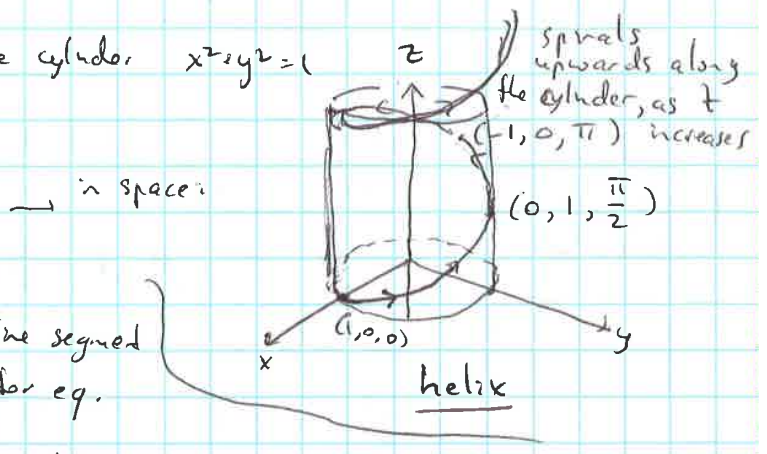 e cylinder x²+y²=1
z
spirals
upwards along
the cylinder, as t
(-1, 0, π) increases
→ in space:
(0, 1, π/2)
(1,0,0)
ine segment
x
y
tor eq.
helix